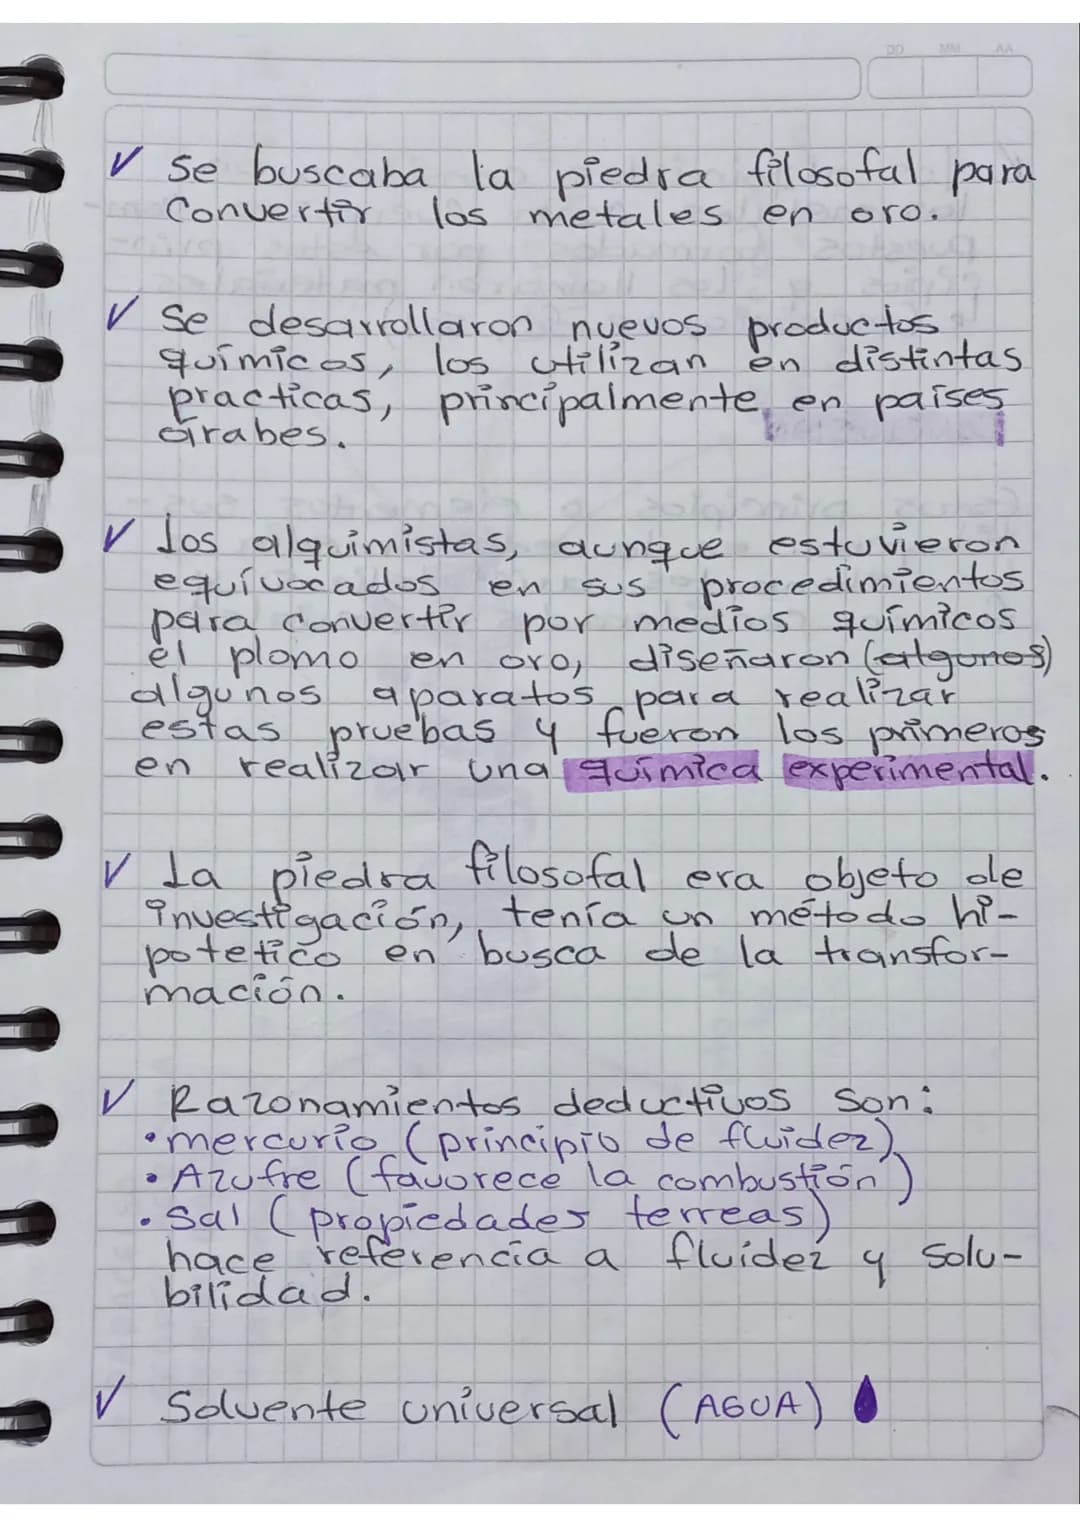 DD MM AA
✓ Se buscaba la piedra filosofal para
Convertir los metales en oro.
✓ Se desarrollaron nuevos productos
químicos, los utilizan en distintas
practicas, principalmente en países
árabes.
✓ Los alquimistas, aunque estuvieron
equívocados en sus procedimientos
para convertir por medios químicos
el plomo en oro, diseñaron (algunos)
algunos aparatos para realizar
estas pruebas y fueron los primeros
en realizar una química experimental.
✓ La piedra filosofal era objeto de
investigación, tenía un método hi-
potetico en busca de la transfor-
mación.
✓ Razonamientos deductivos son:
• mercurio (principio de fluidez)
• Azufre (favorece la combustión)
• Sal (propiedades terreas)
hace referencia a fluidez y solu-
bilidad.
✓ Solvente universal (AGUA)